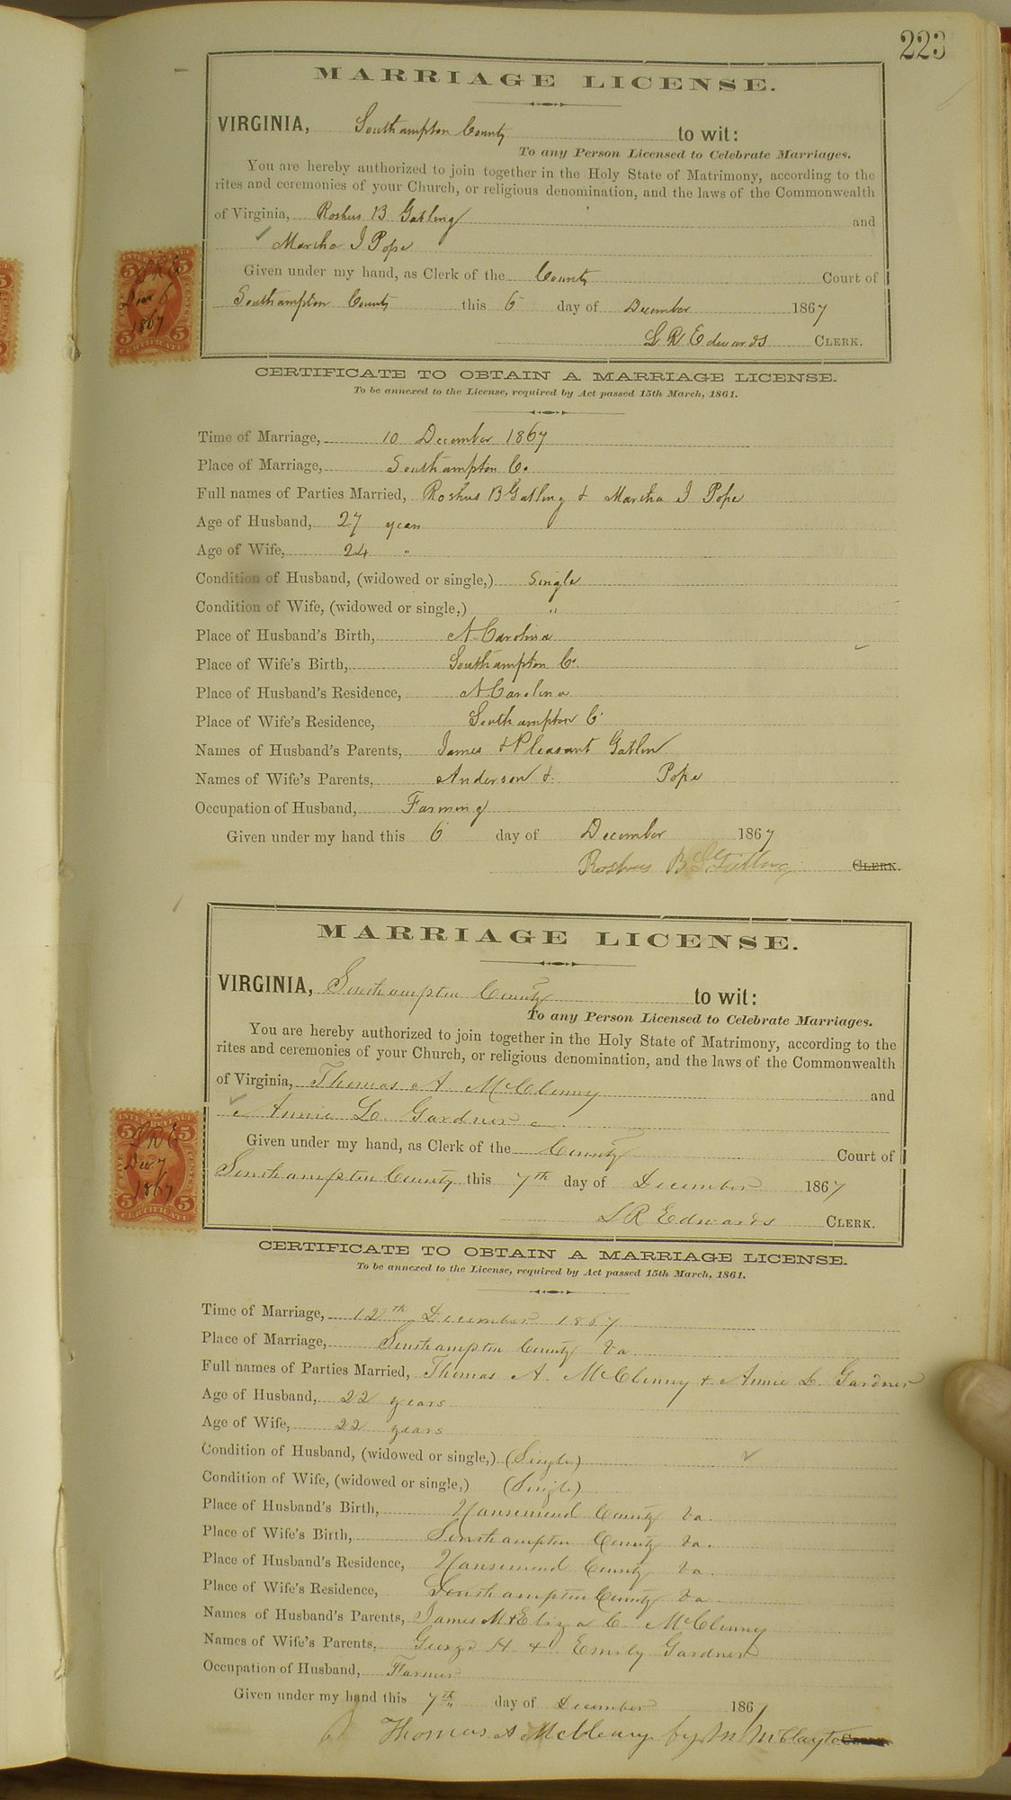 223
MARRIAGE LICENSE.
VIRGINIA, Southampton County to wit:
To any Person Licensed to Celebrate Marriages.
You are hereby authorized to join together in the Holy State of Matrimony, according to the
rites and ceremonies of your Church, or religious denomination, and the laws of the Commonwealth
of Virginia, Roshus B Gatling and
Martha J Pope
Given under my hand, as Clerk of the County Court of
Southampton County this 6 day of December 1867
L R Edwards CLERK.
L R E
Dec 6
1867
CERTIFICATE TO OBTAIN A MARRIAGE LICENSE.
To be annexed to the License, required by Act passed 15th March, 1861.
Time of Marriage, 10 December 1867
Place of Marriage, Southampton Co.
Full names of Parties Married, Roshus B Gatling & Martha J Pope
Age of Husband, 27 years
Age of Wife, 24 "
Condition of Husband, (widowed or single,) Single
Condition of Wife, (widowed or single,) "
Place of Husband's Birth, N Carolina
Place of Wife's Birth, Southampton Co
Place of Husband's Residence, N Carolina
Place of Wife's Residence, Southampton Co
Names of Husband's Parents, James & Pleasant Gatlin
Names of Wife's Parents, Anderson & Pope
Occupation of Husband, Farming
Given under my hand this 6 day of December 1867
Roshus B Gatling CLERK.
MARRIAGE LICENSE.
VIRGINIA, Southampton County to wit:
To any Person Licensed to Celebrate Marriages.
You are hereby authorized to join together in the Holy State of Matrimony, according to the
rites and ceremonies of your Church, or religious denomination, and the laws of the Commonwealth
of Virginia, Thomas A McClenny and
Annie L. Gardner
Given under my hand, as Clerk of the County Court of
Southampton County this 7th day of December 1867
L R Edwards CLERK.
L R E
Dec 7
1867
CERTIFICATE TO OBTAIN A MARRIAGE LICENSE.
To be annexed to the License, required by Act passed 15th March, 1861.
Time of Marriage, 12th December 1867
Place of Marriage, Southampton County Va
Full names of Parties Married, Thomas A. McClenny & Annie L. Gardner
Age of Husband, 22 years
Age of Wife, 22 years
Condition of Husband, (widowed or single,) (Single)
Condition of Wife, (widowed or single,) (Single)
Place of Husband's Birth, Nansemond County Va.
Place of Wife's Birth, Southampton County Va.
Place of Husband's Residence, Nansemond County Va.
Place of Wife's Residence, Southampton County Va
Names of Husband's Parents, James M & Eliza C. McClenny
Names of Wife's Parents, George H & Emily Gardner
Occupation of Husband, Farmer
Given under my hand this 7th day of December 1867
Thomas A by